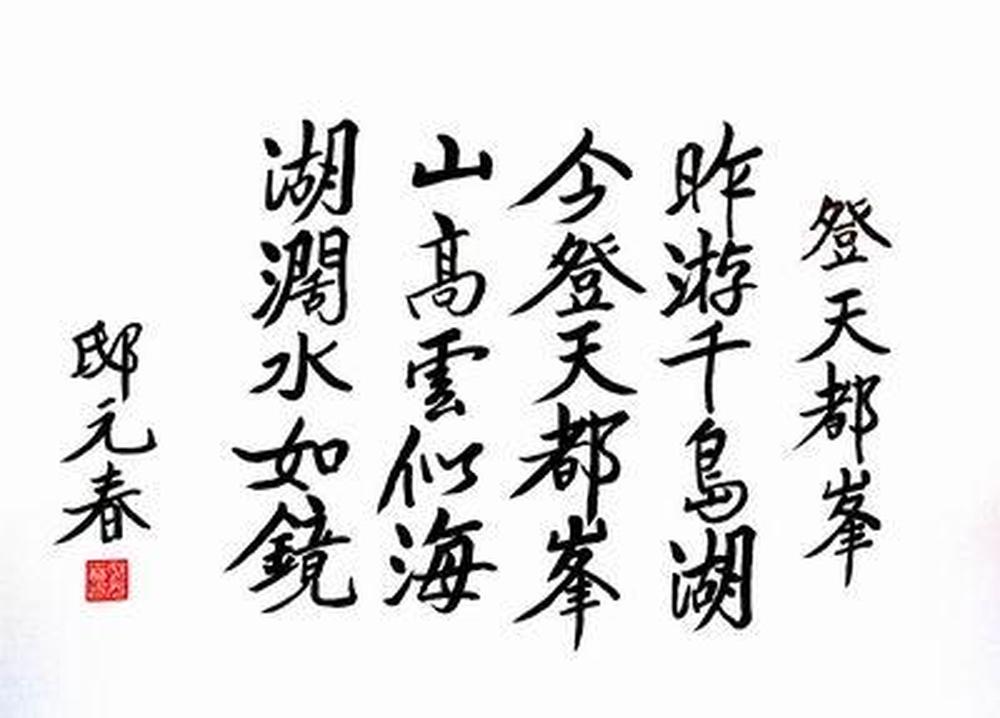 登天都峯
昨游千島湖
今登天都峯
山高雲似海
湖濶水如鏡
邸元春